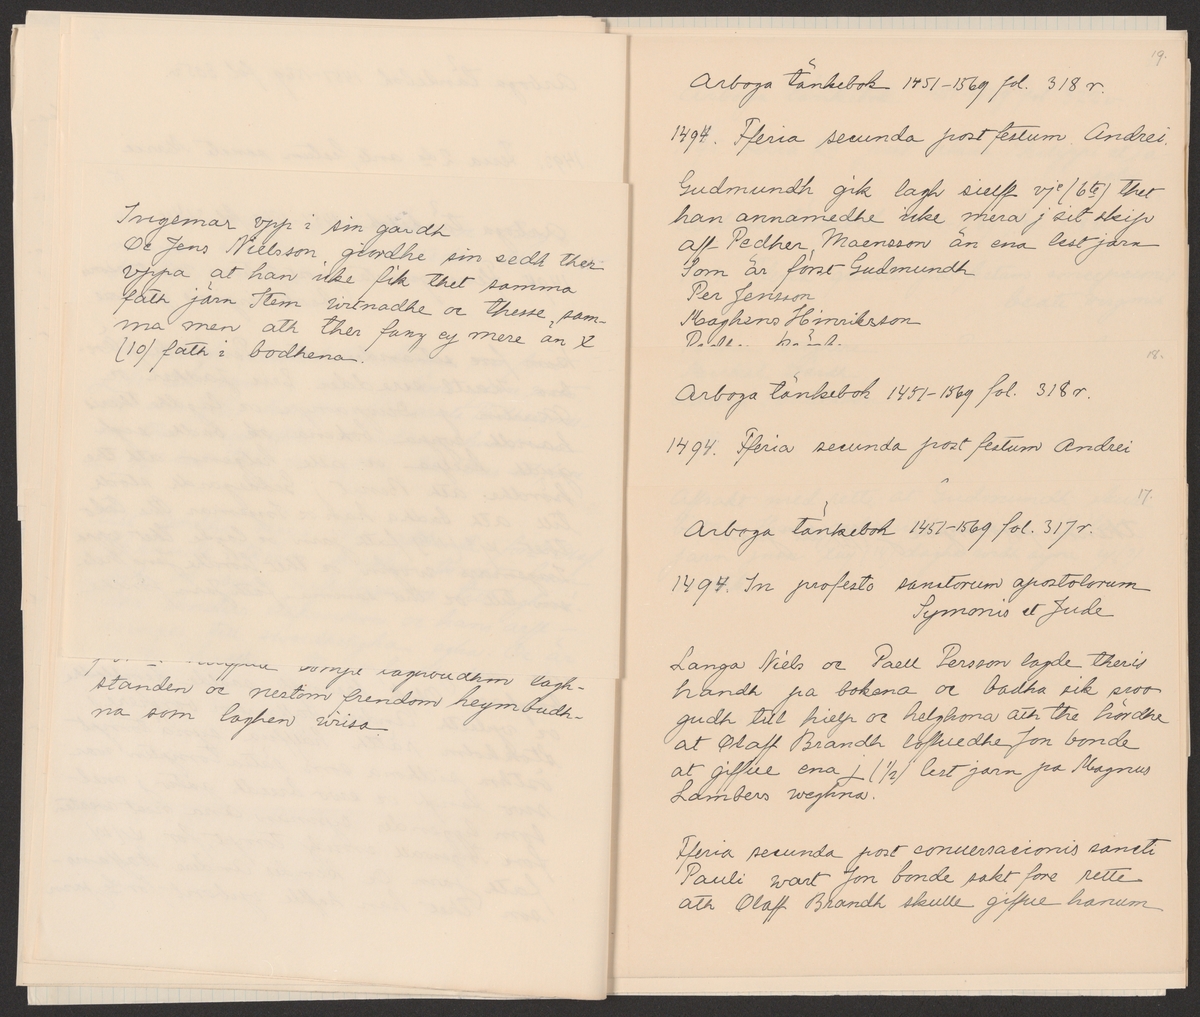 Ingemar vpp i sin gardh
Oc Jens Nielsson giordhe sin eedh ther
vppa at han icke fik thet samma
fath järn Item witnadhe oc thesse sam-
ma men ath ther fang ey mere än X
(10) fath i bodhena.
standen oc nestom frendom heymbudh-
na som laghen wisa
19.
Arboga tänkebok 1451-1569 fol. 318 r.
1494. Fferia secunda post festum Andrei.
Gudmundh gik lagh sielff vjte (6te) thet
han annamedhe icke mera j sit skip
aff Pedher Maensson än ena lest jarn
Som är först Gudmundh
Per Jensson
Maghens Hinriksson
18.
Arboga tänkebok 1451-1569 fol. 318 r.
1494. Fferia secunda post festum Andrei
17.
Arboga tänkebok 1451-1569 fol. 317 r.
1494. In profesto sanctorum apostolorum
Symonis et Jude
Langa Niels oc Paell Persson lagde theris
handh pa bokena oc badha sik swo
gudh till hielp oc helghona ath the hördhe
at Olaff Brandh loffuedhe Jon bonde
at giffue ena j (1/2) lest jarn pa Magnus
Lambers weghna.
Fferia secunda post conuersacionis sancti
Pauli wart Jon bonde sakt fore rette
ath Olaff Brandh skulle giffue hanum